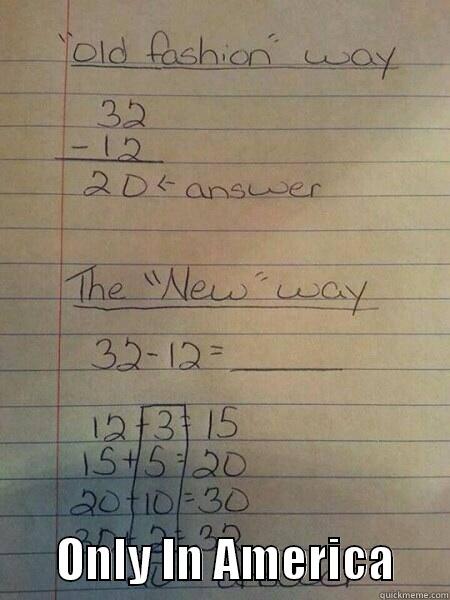 "old fashion" way
32
- 12
20 ← answer
The "New" way
32-12=______
12+3=15
15+5=20
20+10=30
30+2=32
Only In America
quickmeme.com